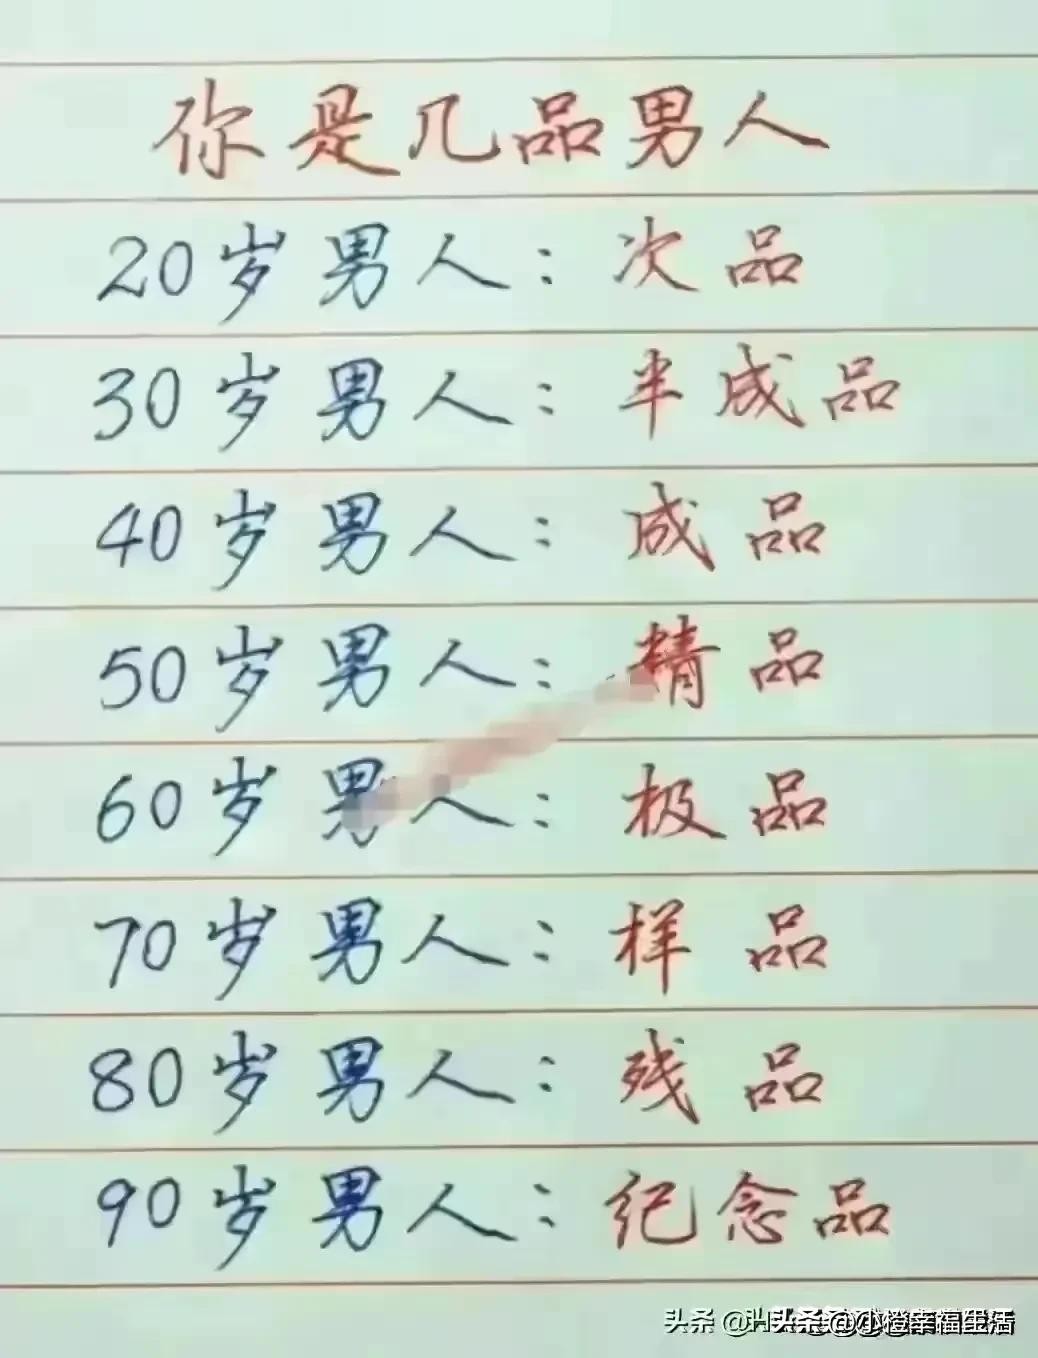 你是几品男人
20岁男人：次品
30岁男人：半成品
40岁男人：成品
50岁男人：精品
60岁男人：极品
70岁男人：样品
80岁男人：残品
90岁男人：纪念品
头条 @小橙幸福生活